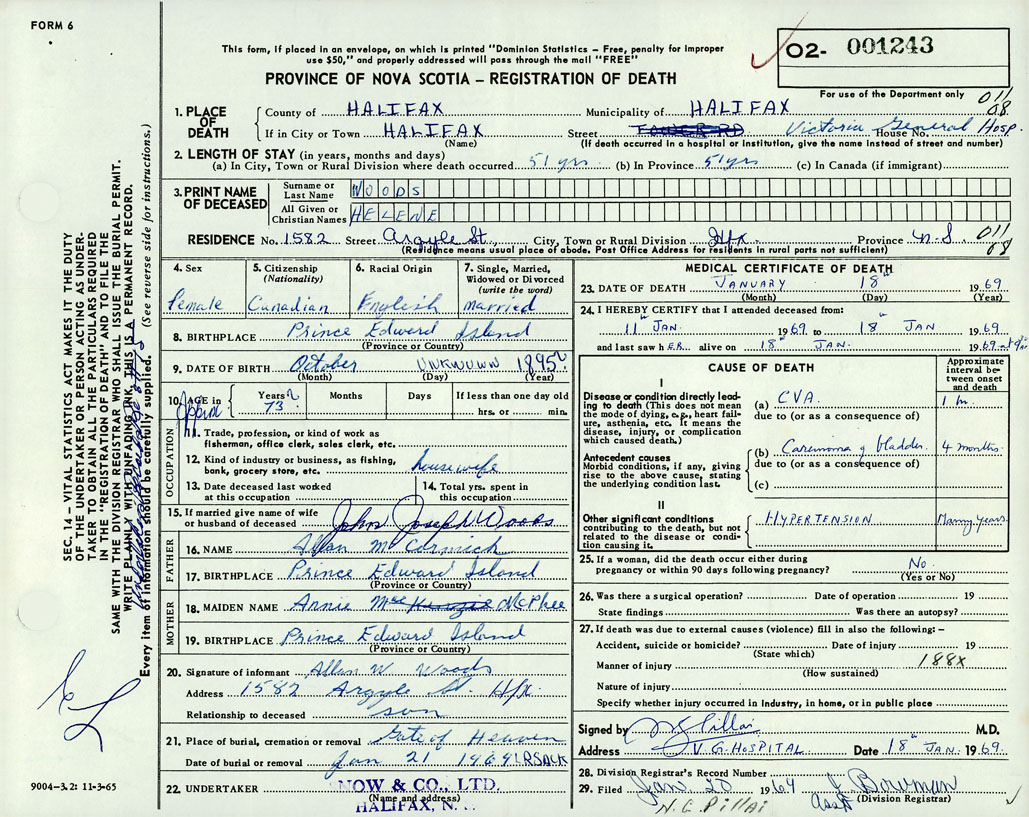 FORM 6
This form, if placed in an envelope, on which is printed "Dominion Statistics – Free, penalty for improper
use $50," and properly addressed will pass through the mail "FREE"
PROVINCE OF NOVA SCOTIA – REGISTRATION OF DEATH
02- 001243
For use of the Department only
011
08
1. PLACE OF DEATH
County of HALIFAX Municipality of HALIFAX
If in City or Town HALIFAX Street Victoria General Hosp. House No.
(Name) (If death occurred in a hospital or institution, give the name instead of street and number)
2. LENGTH OF STAY (in years, months and days)
(a) In City, Town or Rural Division where death occurred 51 yrs. (b) In Province 51 yrs (c) In Canada (if immigrant)
3. PRINT NAME OF DECEASED
Surname or Last Name WOODS
All Given or Christian Names HELENE
RESIDENCE No. 1582 Street Argyle St., City, Town or Rural Division Hfx. Province N.S
011
08
(Residence means usual place of abode. Post Office Address for residents in rural parts not sufficient)
4. Sex
Female
5. Citizenship
(Nationality)
Canadian
6. Racial Origin
English
7. Single, Married, Widowed or Divorced
(write the word)
married
8. BIRTHPLACE Prince Edward Island
(Province or Country)
9. DATE OF BIRTH October UNKNOWN 1895?
(Month) (Day) (Year)
10. AGE in Years Months Days If less than one day old
Approx 73? hrs. or min.
OCCUPATION
11. Trade, profession, or kind of work as
fisherman, office clerk, sales clerk, etc.
12. Kind of industry or business, as fishing,
bank, grocery store, etc. housewife
13. Date deceased last worked
at this occupation
14. Total yrs. spent in
this occupation
15. If married give name of wife
or husband of deceased John Joseph Woods
FATHER
16. NAME Allan McCormick
17. BIRTHPLACE Prince Edward Island
(Province or Country)
MOTHER
18. MAIDEN NAME Annie McPhee
19. BIRTHPLACE Prince Edward Island
(Province or Country)
20. Signature of informant Allan W Woods
Address 1582 Argyle St. Hfx.
Relationship to deceased son
21. Place of burial, cremation or removal Gate of Heaven
Date of burial or removal Jan 21 1969 LR SACK
22. UNDERTAKER NOW & CO., LTD.
(Name and address)
HALIFAX, N.
MEDICAL CERTIFICATE OF DEATH
23. DATE OF DEATH JANUARY 18th 1969
(Month) (Day) (Year)
24. I HEREBY CERTIFY that I attended deceased from:
11th JAN. 1969 to 18th JAN 1969
and last saw hER alive on 18th JAN. 1969
CAUSE OF DEATH
Approximate interval between onset and death
I
Disease or condition directly leading to death (This does not mean the mode of dying, e.g., heart failure, asthenia, etc. It means the disease, injury, or complication which caused death.)
(a) CVA
due to (or as a consequence of)
Antecedent causes
Morbid conditions, if any, giving rise to the above cause, stating the underlying condition last.
(b) Carcinoma of bladder 4 months.
due to (or as a consequence of)
(c)
II
Other significant conditions
contributing to the death, but not related to the disease or condition causing it.
HYPERTENSION Many years.
25. If a woman, did the death occur either during
pregnancy or within 90 days following pregnancy? No.
(Yes or No)
26. Was there a surgical operation? Date of operation 19
State findings Was there an autopsy?
27. If death was due to external causes (violence) fill in also the following: –
Accident, suicide or homicide? Date of injury 19
(State which)
Manner of injury 188X
(How sustained)
Nature of injury
Specify whether injury occurred in Industry, in home, or in public place
Signed by NG Pillai M.D.
Address V.G. HOSPITAL Date 18th JAN. 1969.
28. Division Registrar's Record Number
29. Filed Jan. 20 1969 J Bowman
Asst (Division Registrar)
N.G. Pillai
SEC. 14 – VITAL STATISTICS ACT MAKES IT THE DUTY
OF THE UNDERTAKER OR PERSON ACTING AS UNDER-
TAKER TO OBTAIN ALL THE PARTICULARS REQUIRED
IN THE "REGISTRATION OF DEATH" AND TO FILE THE
SAME WITH THE DIVISION REGISTRAR WHO SHALL ISSUE THE BURIAL PERMIT.
WRITE PLAINLY WITH UNFADING INK. THIS IS A PERMANENT RECORD.
Every item of information should be carefully supplied. (See reverse side for instructions.)
9004-3.2: 11-3-65